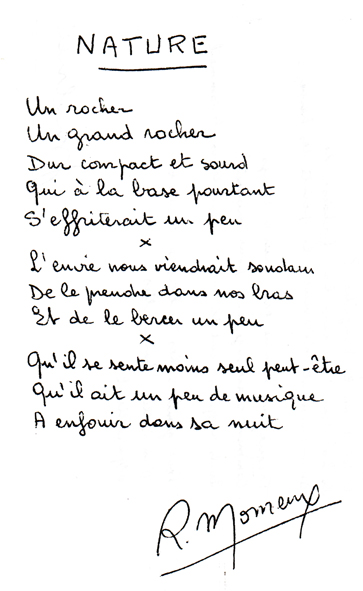 NATURE
Un rocher
Un grand rocher
Dur compact et sourd
Qui à la base pourtant
S'effriterait un peu
x
L'envie nous viendrait soudain
De le prendre dans nos bras
Et de le bercer un peu
x
Qu'il se sente moins seul peut-être
Qu'il ait un peu de musique
A enfouir dans sa nuit
R. Momeux